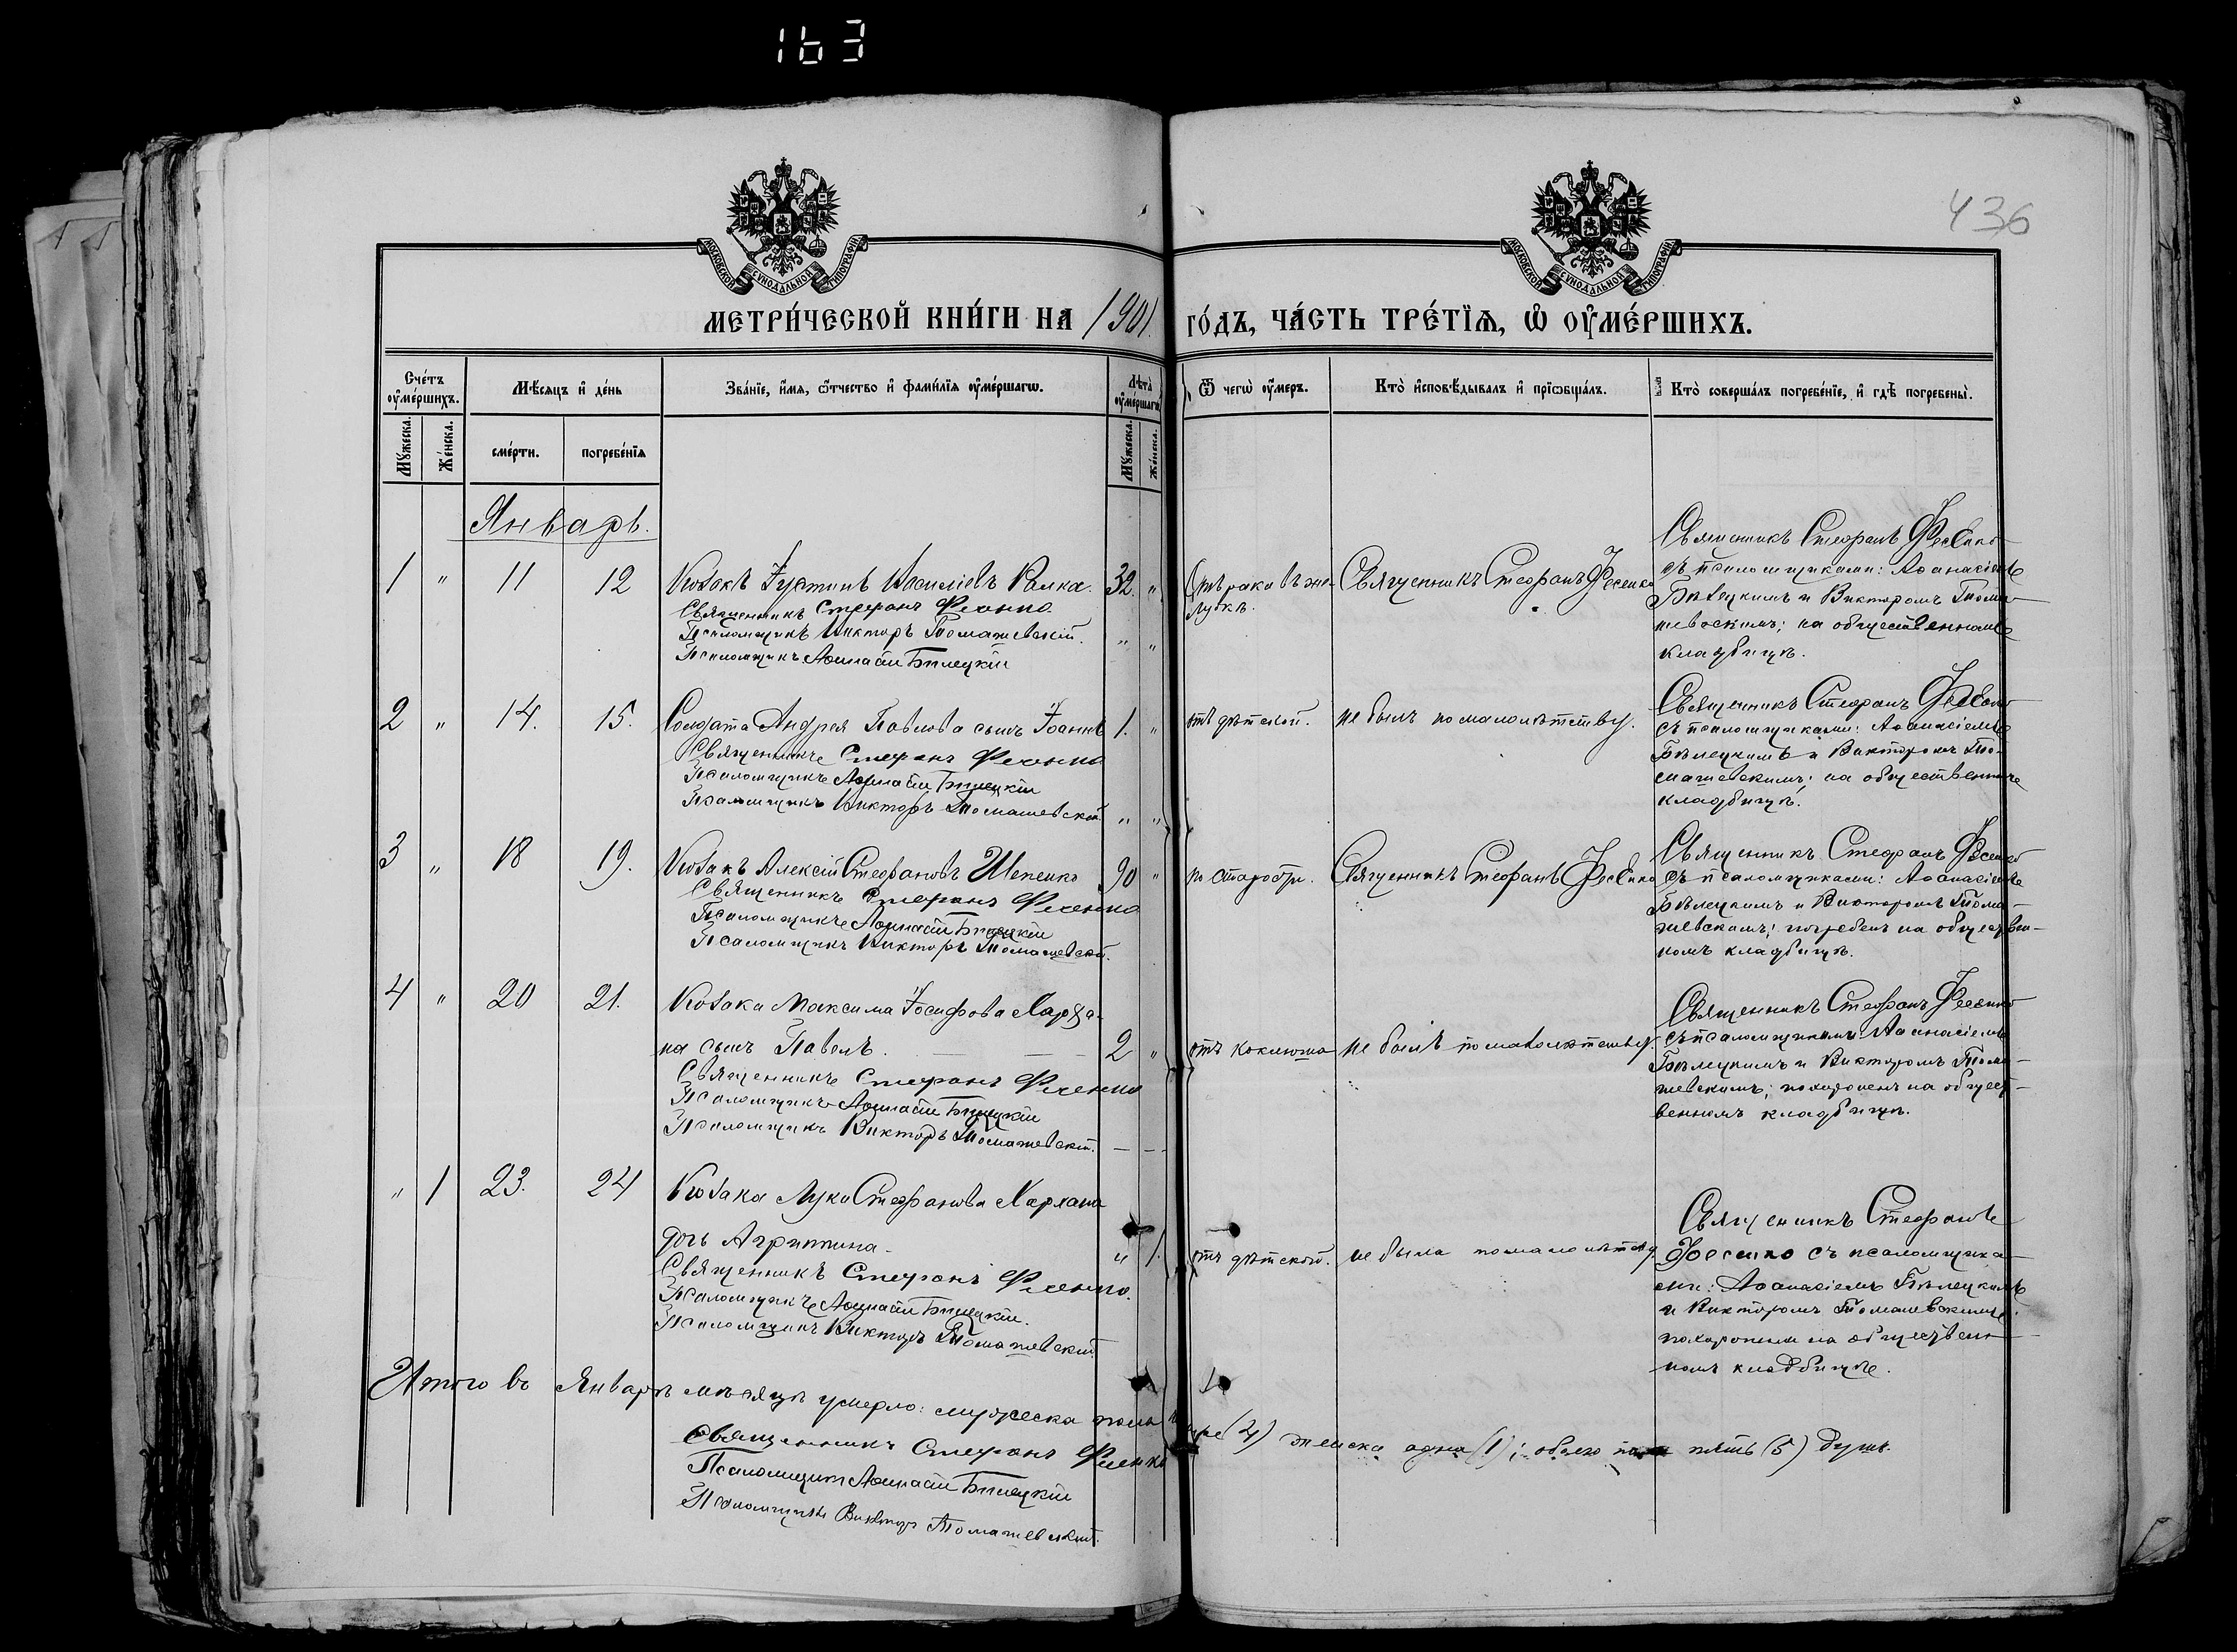 163
436
МОСКОВСКОЙ СѴНОДАЛЬНОЙ ТИПОГРАФІИ
МОСКОВСКОЙ СѴНОДАЛЬНОЙ ТИПОГРАФІИ
МЕТРИ́ЧЕСКОЙ КНИ́ГИ НА 1901 ГО́ДЪ, ЧА́СТЬ ТРЕ́ТІѦ, Ѡ҆ ОУ҆МЕ́РШИХЪ.
Сче́тъ оу҆ме́ршихъ.
Мѣ́сяцъ и҆ де́нь
Зва́нїе, и҆́мя, ѻ҆́тчество и҆ фами́лїя оу҆ме́ршагѡ.
Лѣ́та оу҆ме́ршагѡ
Ѿ чегѡ̀ оу҆́меръ.
Кто̀ и҆сповѣ́дывалъ и҆ прїѡбща́лъ.
Кто̀ соверша́лъ погребе́нїе, и҆ гдѣ̀ погребены̀.
Мꙋ́жеска.
Же́нска.
сме́рти.
погребе́нїя
Мꙋ́жеска.
Же́нска.
Январь.
1 " 11 12 Козакъ Іустинъ Василіевъ 32. "
Священникъ Стефанъ Фесенко
Псаломщикъ Викторъ Томашевскій.
Псаломщикъ Афанасій Бѣлецкій
Священникъ Стефанъ Фесенко
Священникъ Стефанъ Фесенко
съ псаломщиками: Аѳанасіемъ
Бѣлецкимъ и Викторомъ Тома-
шевскимъ; на общественномъ
кладбищѣ.
2 " 14. 15. Солдата Андрея Павлова сынъ Іоаннъ 1. "
Священникъ Стефанъ Фесенко
Псаломщикъ Афанасій Бѣлецкій
Псаломщикъ Викторъ Томашевскій.
отъ дѣтской. не былъ по малолѣтству.
Священникъ Стефанъ Фесенко
съ псаломщиками: Аѳанасіемъ
Бѣлецкимъ и Викторомъ То-
машевскимъ; на общественномъ
кладбищѣ.
3 " 18 19. Козакъ Алексій Стефановъ Шепенко 90 "
Священникъ Стефанъ Фесенко
Псаломщикъ Афанасій Бѣлецкій
Псаломщикъ Викторъ Томашевскій.
старости. Священникъ Стефанъ Фесенко
Священникъ Стефанъ Фесенко
съ псаломщиками: Аѳанасіемъ
Бѣлецкимъ и Викторомъ Тома-
шевскимъ; погребенъ на обществен-
номъ кладбищѣ.
4 " 20 21. Козака Максима Іосифова
на сынъ Павелъ. 2 "
Священникъ Стефанъ Фесенко
Псаломщикъ Афанасій Бѣлецкій
Псаломщикъ Викторъ Томашевскій.
отъ коклюша не былъ по малолѣтству.
Священникъ Стефанъ Фесенко
съ псаломщиками: Аѳанасіемъ
Бѣлецкимъ и Викторомъ Тома-
шевскимъ; похороненъ на общест-
венномъ кладбищѣ.
" 1 23. 24 Козака Луки Стефанова
дочь Агриппина. " 1.
Священникъ Стефанъ Фесенко.
Псаломщикъ Афанасій Бѣлецкій.
Псаломщикъ Викторъ Томашевскій.
отъ дѣтской. не была по малолѣтству
Священникъ Стефанъ
Фесенко съ псаломщика-
ми: Аѳанасіемъ Бѣлецкимъ
и Викторомъ Томашевскимъ;
похоронена на обществен-
номъ кладбищѣ.
Итого въ Январѣ мѣсяцѣ умерло: мужеска пола (4) женска одна (1); обоего пола пять (5) душъ.
Священникъ Стефанъ Фесенко
Псаломщикъ Афанасій Бѣлецкій
Псаломщикъ Викторъ Томашевскій.